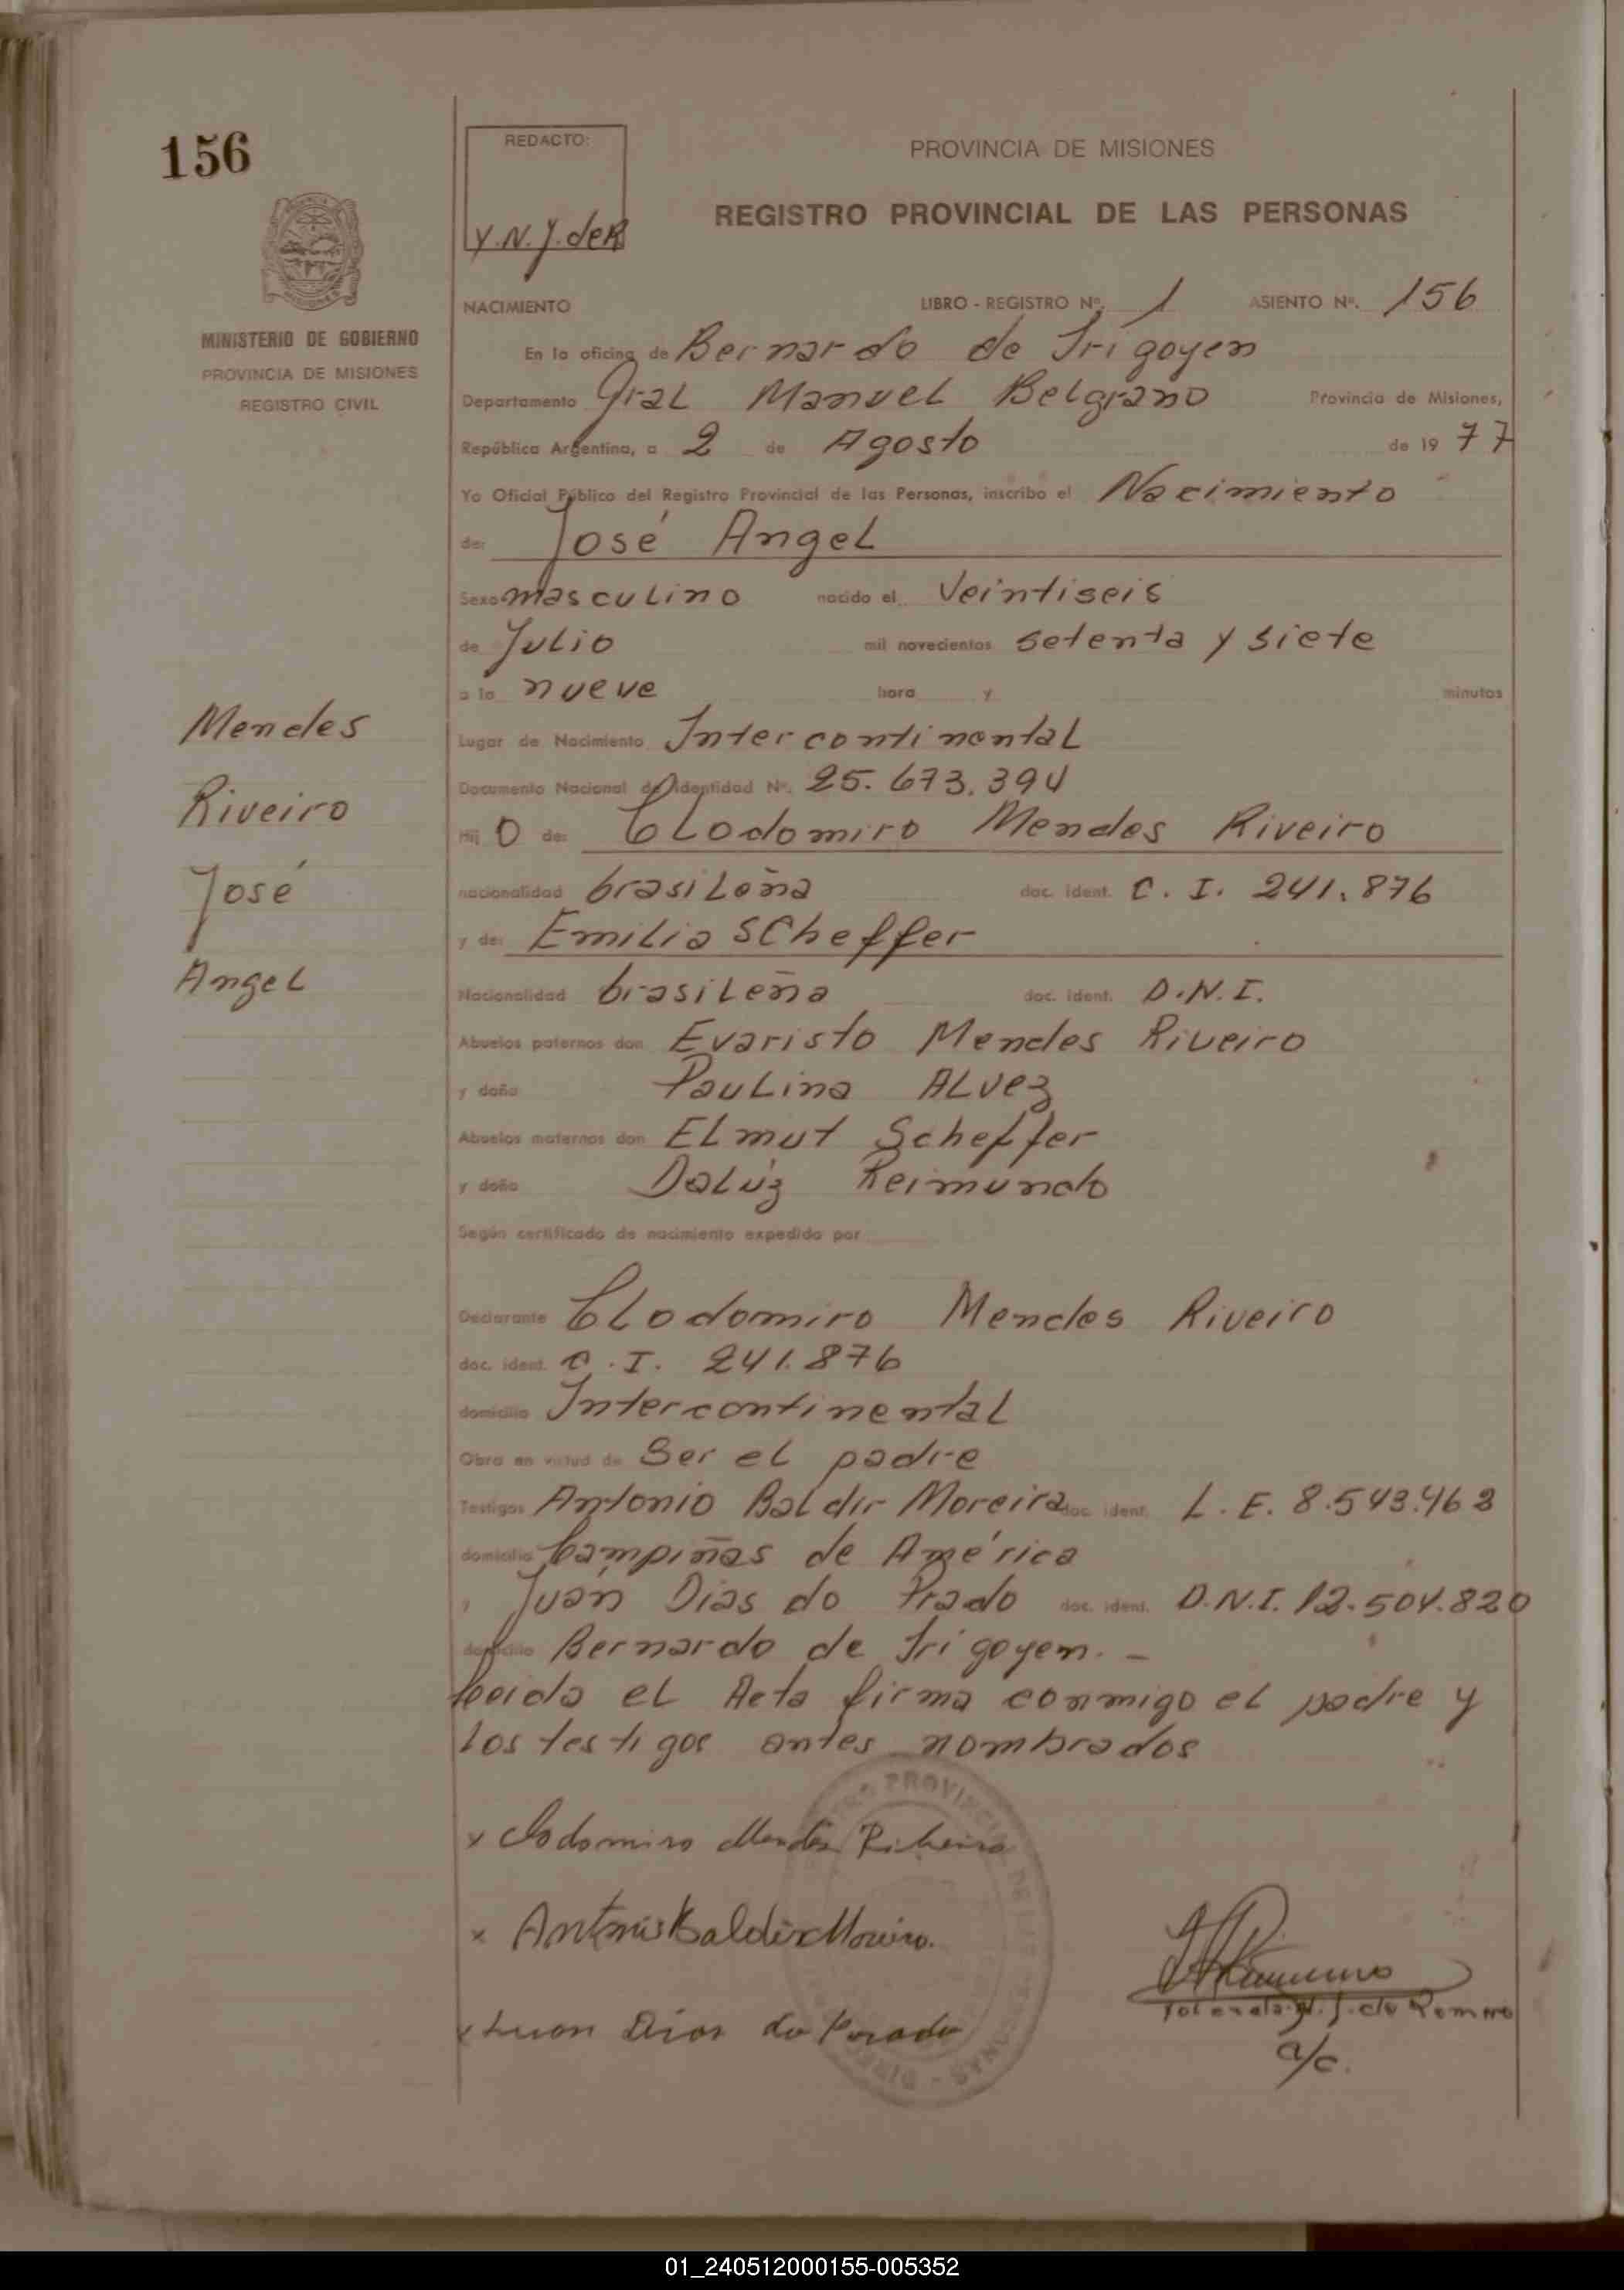 156
REDACTO:
Y.N.J.deR
PROVINCIA DE MISIONES
REGISTRO PROVINCIAL DE LAS PERSONAS
MINISTERIO DE GOBIERNO
PROVINCIA DE MISIONES
REGISTRO CIVIL
NACIMIENTO LIBRO - REGISTRO Nº. 1 ASIENTO Nº. 156
En la oficina de Bernardo de Irigoyen
Departamento Gral Manuel Belgrano Provincia de Misiones,
República Argentina, a 2 de Agosto de 19 77
Yo Oficial Público del Registro Provincial de las Personas, inscribo el Nacimiento
de: José Angel
Sexo masculino nacido el Veintiseis
de Julio mil novecientos setenta y siete
a la nueve hora y minutos
Mendes
Riveiro
José
Angel
Lugar de Nacimiento Intercontinental
Documento Nacional de Identidad Nº. 25.673.394
Hij O de: Clodomiro Mendes Riveiro
nacionalidad brasileña doc. ident. C. I. 241.876
y de: Emilia Scheffer
Nacionalidad brasileña doc. ident. D.N.I.
Abuelos paternos don Evaristo Mendes Riveiro
y doña Paulina Alvez
Abuelos maternos don Elmut Scheffer
y doña Dalúz Reimundo
Según certificado de nacimiento expedido por
Declarante Clodomiro Mendes Riveiro
doc. ident. C.I. 241.876
domicilio Intercontinental
Obra en virtud de Ser el padre
Testigos Antonio Baldir Moreira doc. ident. L.E. 8.543.462
domicilio Campiñas de América
y Juán Dias do Prado doc. ident. D.N.I. 12.504.820
domicilio Bernardo de Irigoyem. -
Leida el Acta firma conmigo el padre y
los testigos antes nombrados
x Clodomiro Mendes Ribeiro
x Antonio Baldir Moreira.
x Luan Dias do Prado
J. de Romero
a/c.
01_240512000155-005352